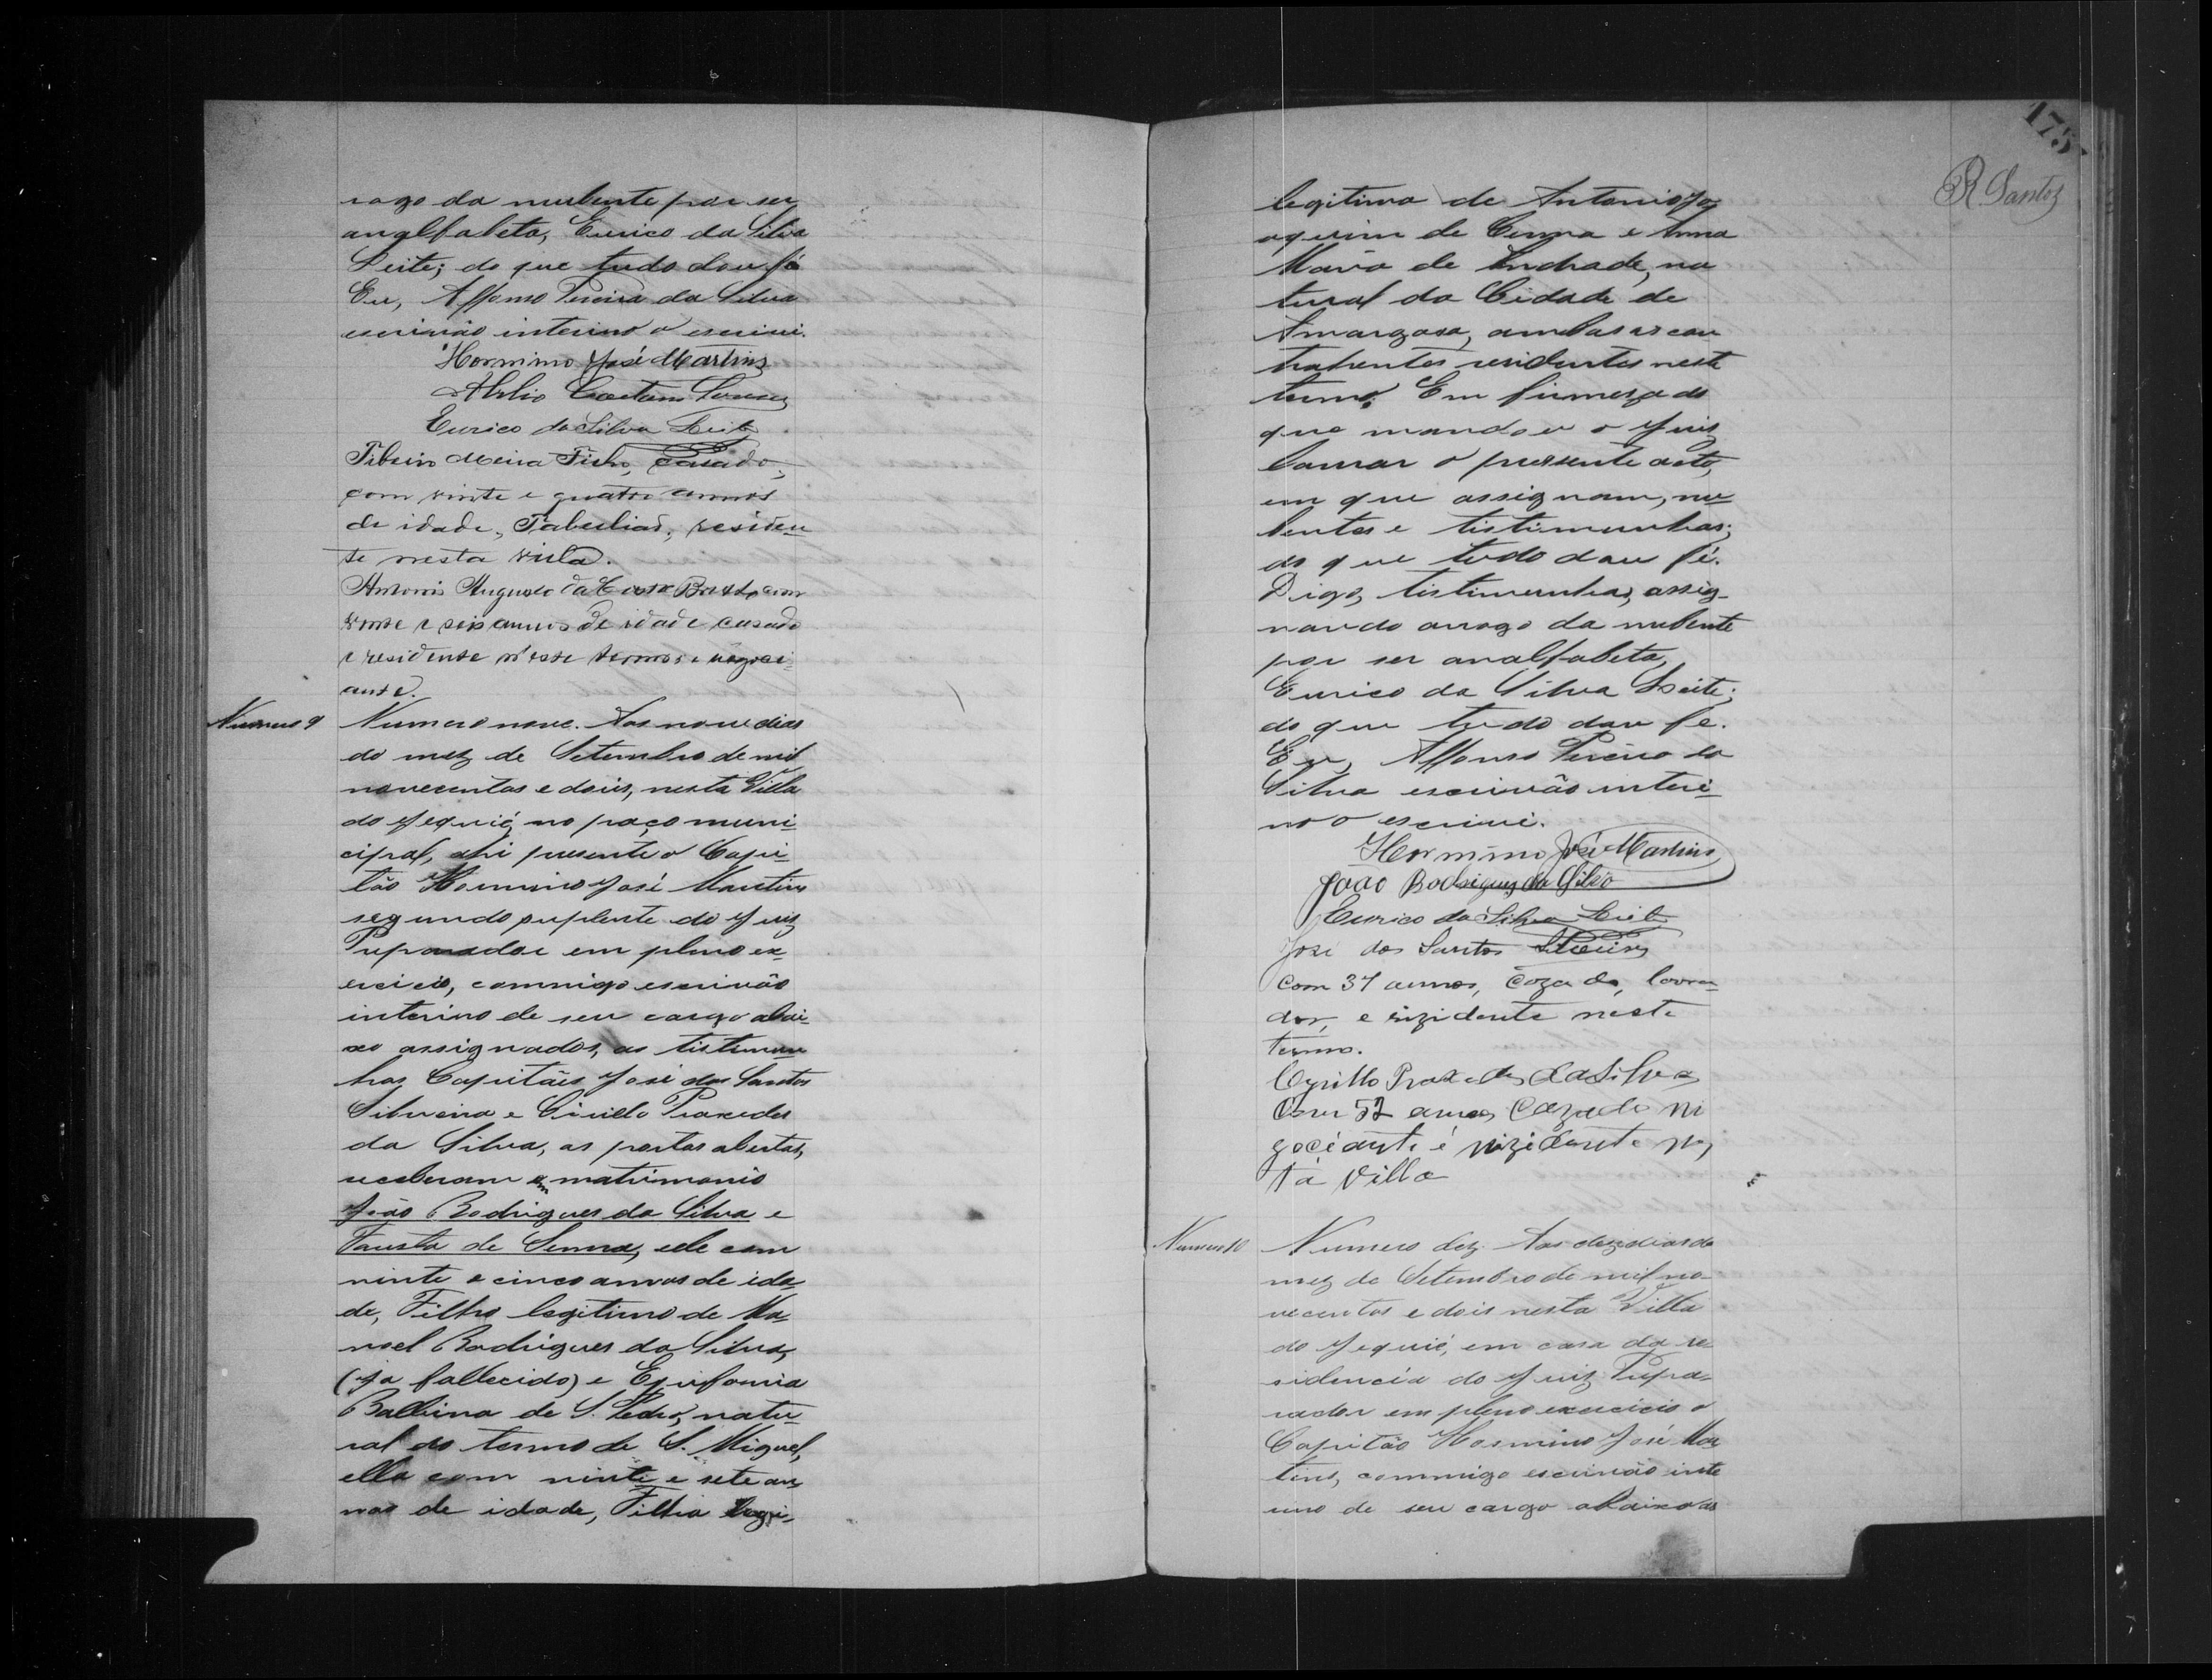 rogo da nubente por ser
analfabeta, Eurico da Silva
Leite; do que tudo dou fé
Eu, Affonso Pereira da Silva
escrivão interino o escrivi.
Hormino José Martins
Abilio Caetano
Eurico da Silva Leite
Meira Filho, Casado,
com vinte e quatro annos
de idade, Tabellião, residen
te nesta villa.
Antonio Augusto da Costa com
vinte e seis annos de idade casado
e residente n'este termo e negoci-
ante.
Numero 9
Numero nove. Aos nove dias
do mez de Setembro de mil
novecentos e dois, nesta Villa
do Jequié, no paço muni-
cipal, ahi presente o Capi-
tão Hormino José Martins
segundo suplente do Juiz
Preparador em pleno ex-
ercicio, commigo escrivão
interino de seu cargo abai-
xo assignados, as testemun
has Capitães José dos Santos
Silveira e Cirillo Praxedes
da Silva, as portas abertas,
receberam em matrimonio
João Rodrigues da Silva e
Fausta de Senna, elle com
vinte e cinco annos de ida-
de, Filho legitimo de Ma-
noel Rodrigues da Silva,
(já fallecido) e Epifania
Balbina de S. Pedro, natu-
ral do termo de S. Miguel,
ella com vinte e sete an-
nos de idade, Filha legi-
175
R. Santos
legitima de Antonio Jo-
aquim de Senna e Anna
Maria de Andrade, na
tural da Cidade de
Amargosa, ambos os con
trahentes residentes neste
termo. Em firmeza do
que mandou o Juiz
lavrar o presente acto,
em que assignam, nu-
bentes e testimunhas;
do que tudo dou fé.
Digo, testimunhas, assig-
nando arogo da nubente
por ser analfabeta,
Eurico da Silva Leite;
do que tudo dou fé.
Eu, Affonso Pereira da
Silva escrivão interi-
no o escrivi.
Hormino José Martins
João Rodrigues da Silva
Eurico da Silva Leite
José dos Santos Silveira
com 37 annos, cazado, lavra-
dor, e rizidente neste
termo.
Cyrillo Praxedes da Silva
Com 52 annos Cazado ni
gociante é rizidente nes
ta Villa
Numero 10
Numero dez. Aos dez dias do
mez de Setembro de mil no-
vecentos e dois nesta Villa
do Jequié, em casa da re-
sidencia do Juiz Prepa-
rador em pleno exercicio o
Capitão Hormino José Mar
tins, commigo escrivão inte
rino de seu cargo abaixo as